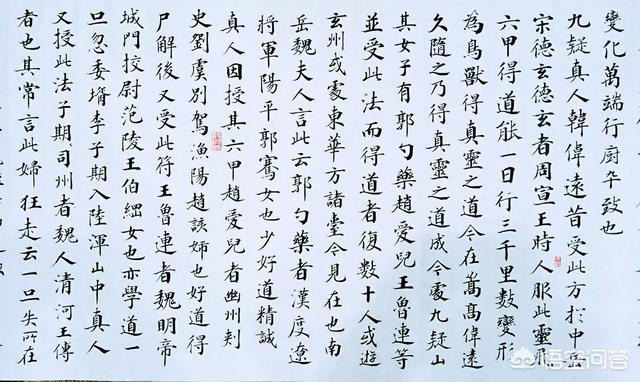 變化萬端行厨卒致也
九疑真人韓偉遠昔受此方於中岳
宋德玄德玄者周宣王時人服此靈飛
六甲得道能一日行三千里數變形
為鳥獸得真靈之道今在嵩高偉遠
久隨之乃得真靈之道成今處九疑山
其女子有郭勺藥趙愛兒王魯連等
並受此法而得道者復數十人或遊
玄州或處東華方諸臺今見在也南
岳魏夫人言此云郭勺藥者漢度遼
將軍陽平郭騫女也少好道精誠
真人因授其六甲趙愛兒者幽州刾
史劉虞別駕漁陽趙該姉也好道得
尸解後又受此符王魯連者魏明帝
城門挍尉范陵王伯綱女也亦學道一
旦忽委壻李子期入陸渾山中真人
又授此法子期司州者魏人清河王傳
者也其常言此婦狂走云一旦失所在
悟空问答